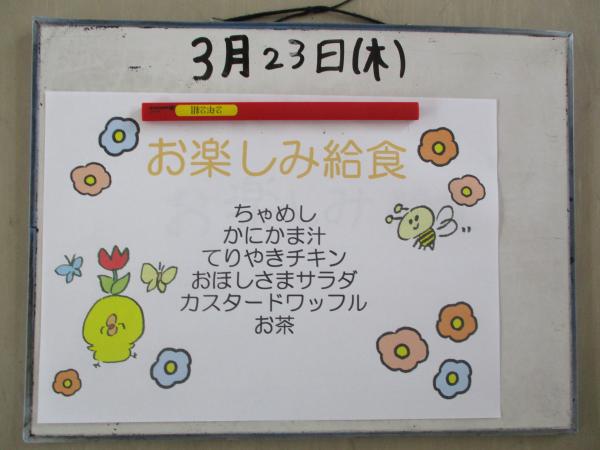 3月23日(木)
2年2組
お楽しみ給食
ちゃめし
かにかま汁
てりやきチキン
おほしさまサラダ
カスタードワッフル
お茶